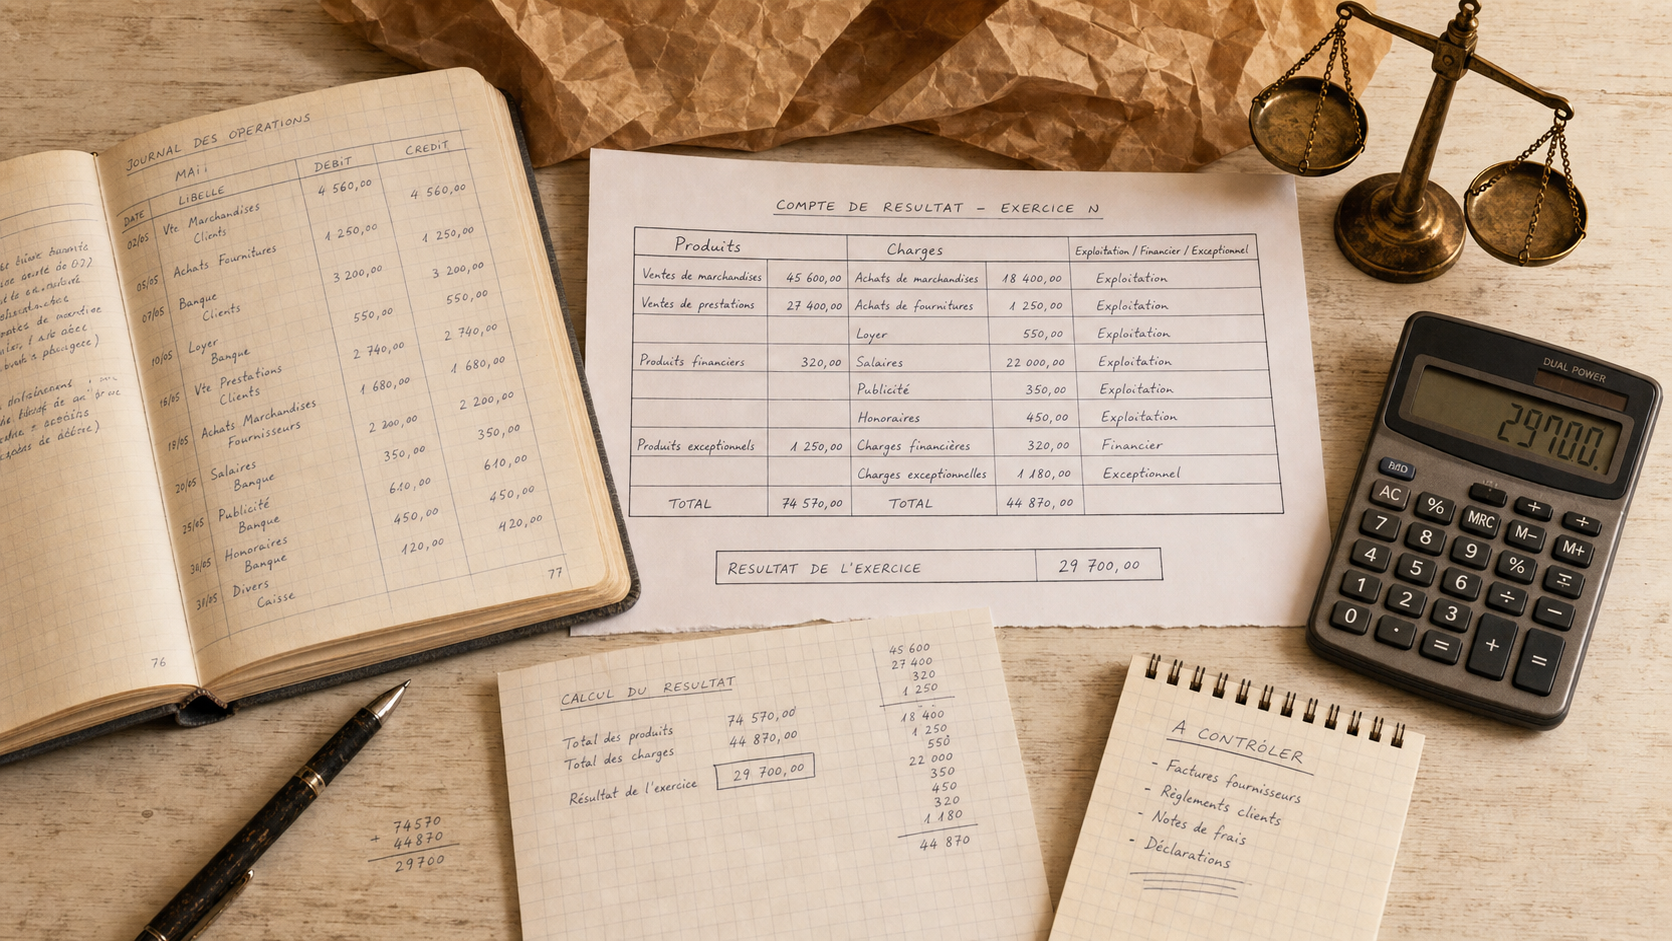 JOURNAL DES OPERATIONS
MAI
DATE LIBELLE DEBIT CREDIT
02/05 Vte Marchandises 4 560,00
Clients 4 560,00
05/05 Achats Fournitures 1 250,00 1 250,00
07/05 Banque 3 200,00
Clients 3 200,00
10/05 Loyer 550,00 550,00
Banque
Vte Prestations 2 740,00 2 740,00
Clients
18/05 Achats Marchandises 1 680,00 1 680,00
Fournisseurs
20/05 Salaires 2 200,00 2 200,00
Banque
25/05 Publicité 350,00 350,00
Banque
Honoraires 610,00 610,00
Banque
Divers 450,00 450,00
Caisse 120,00 420,00
76
77
COMPTE DE RESULTAT – EXERCICE N
Produits Charges Exploitation / Financier / Exceptionnel
Ventes de marchandises 45 600,00 Achats de marchandises 18 400,00 Exploitation
Ventes de prestations 27 400,00 Achats de fournitures 1 250,00 Exploitation
Loyer 550,00 Exploitation
Produits financiers 320,00 Salaires 22 000,00 Exploitation
Publicité 350,00 Exploitation
Honoraires 450,00 Exploitation
Produits exceptionnels 1 250,00 Charges financières 320,00 Financier
Charges exceptionnelles 1 180,00 Exceptionnel
TOTAL 74 570,00 TOTAL 44 870,00
RESULTAT DE L'EXERCICE 29 700,00
DUAL POWER
29700.
AC % MRC M– M+
7 8 9 %
4 5 6 ÷ –
1 2 3 + =
0 · =
CALCUL DU RESULTAT
Total des produits 74 570,00
Total des charges 44 870,00
Résultat de l'exercice 29 700,00
45 600
27 400
320
1 250
18 400
1 250
550
22 000
350
450
320
1 180
44 870
74570
+ 44870
29700
A CONTRÔLER
- Factures fournisseurs
- Règlements clients
- Notes de frais
- Déclarations